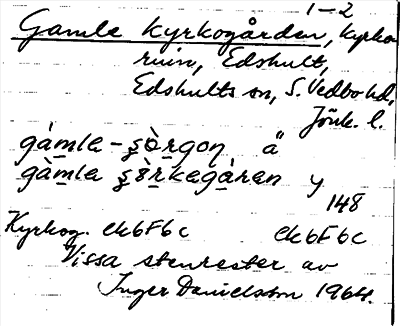 1-2
Gamle Kyrkogården, Kyrko-
ruin, Edshult,
Edshults sn, S. Vedbo hd,
Jönk. l.
gàm̲le - ʂɵ̀r̲gon̥ ä
gàm̲le ʂɵ̀r̲kegåren y
148
Kyrkog. ek6F6c ek6F6c
Vissa stenrester av
Inger Danielsson 1964.